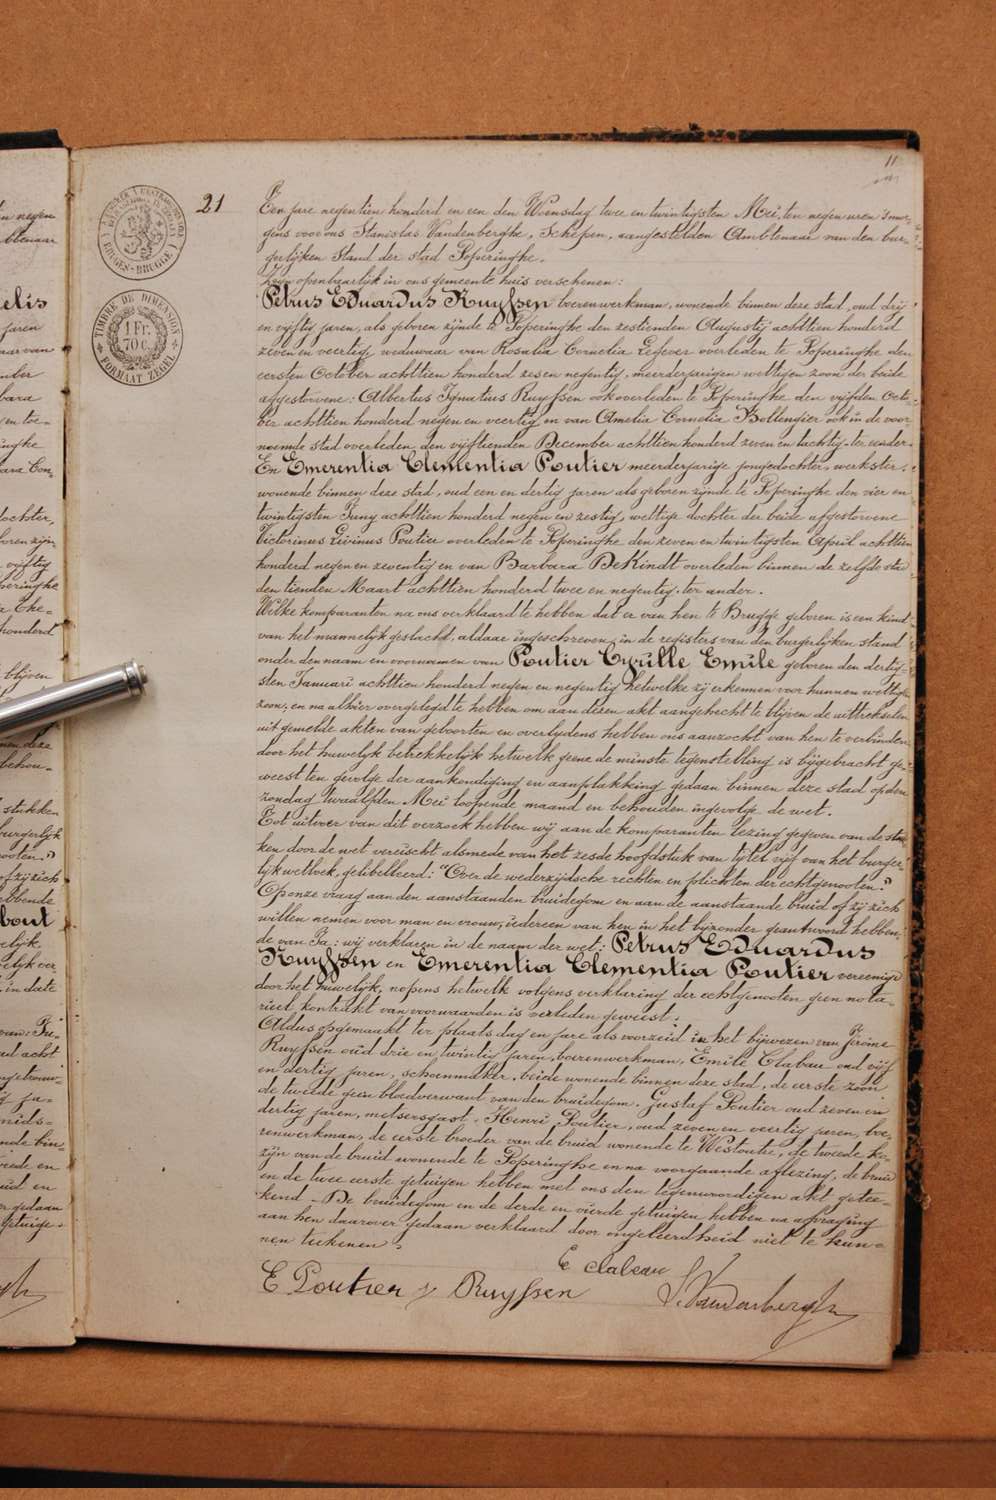 11
21
Een jare negentien honderd en een den Woensdag twee en twintigsten Mei, ten negen uren 's mor-
gens voor ons Stanislas Vandenberghe, Schepen, aangestelden Ambtenaar van den bur-
gerlijken Stand der stad Poperinghe.
Zijn openbaarlijk in ons gemeente huis verschenen:
Petrus Eduardus Ruyssen boerenwerkman, wonende binnen deze stad, oud drij
en vijftig jaren, als geboren zijnde te Poperinghe den zestienden Augusty achttien honderd
zeven en veertig, weduwaar van Rosalia Cornelia Lefever overleden te Poperinghe den
eersten October achttien honderd zes en negentig, meerderjarigen wettigen zoon der beide
afgestorvene: Albertus Ignatius Ruyssen ook overleden te Poperinghe den vijfden Octo-
ber achttien honderd negen en veertig en van Amelia Cornelia Bollengier ook in de voor
noemde stad overleden, den vijftienden December achttien honderd zeven en tachtig, ter eender.
En Emerentia Clementia Poutier meerderjarige jongedochter, werkster,
wonende binnen deze stad, oud een en dertig jaren als geboren zijnde te Poperinghe den vier en
twintigsten Juny achttien honderd negen en zestig, wettige dochter der beide afgestorvene
Victorinus Livinus Poutier overleden te Poperinghe den zeven en twintigsten April achttien
honderd negen en zeventig en van Barbara DeKindt overleden binnen de zelfde stad
den tienden Maart achttien honderd twee en negentig, ter ander.
Welke komparanten na ons verklaard te hebben dat er van hen te Brugge geboren is een kind
van het mannelyk geslacht, aldaar ingeschreven in de registers van den burgerlijken stand
onder den naam en voornamen van Poutier Cyrille Emile geboren den dertig-
sten Januari achttien honderd negen en negentig hetwelke zij erkennen voor hunnen wettigen
zoon; en na alhier overgelegd te hebben om aan dezen akt aangehecht te blijven de uittrekselen
uit gemelde akten van geboorten en overlydens hebben ons aanzocht van hen te verbinden
door het huwelijk betrekkelijk hetwelk geene de minste tegenstelling is bijgebracht ge-
weest ten gevolge der aankondiging en aanplakking gedaan binnen deze stad op den
zondag twaalfden Mei loopende maand en behouden ingevolge de wet.
Tot uitvoer van dit verzoek hebben wij aan de komparanten lezing gegeven van de stuk
ken door de wet vereischt alsmede van het zesde hoofdstuk van tytel vijf van het burger-
lijk wetboek, gelibelleerd: "Over de wederzijdsche rechten en plichten der echtgenooten."
Op onze vraag aan den aanstaanden bruidegom en aan de aanstaande bruid of zij zich
willen nemen voor man en vrouw, iedereen van hen in het bijzonder geantwoord hebben-
de van Ja: wij verklaren in de naam der wet: Petrus Eduardus
Ruyssen en Emerentia Clementia Poutier vereenigd
door het huwelijk, nopens hetwelk volgens verklaring der echtgenooten geen nota-
rieel kontrakt van voorwaarden is verleden geweest.
Aldus opgemaakt ter plaats dag en jare als voorzeid in het bijwezen van Jerome
Ruyssen oud drie en twintig jaren, boerenwerkman, Emile Clabau oud vijf
en dertig jaren, schoenmaker, beide wonende binnen deze stad, de eerste zoon
de tweede geen bloedverwant van den bruidegom. Gustaf Poutier oud zeven en
dertig jaren, metsersgast, Henri Poutier, oud zeven en veertig jaren, boe-
renwerkman, de eerste broeder van de bruid wonende te Westoutre, de tweede ko-
zijn van de bruid wonende te Poperinghe en na voorgaande aflezing, de bruid
en de twee eerste getuigen hebben met ons den tegenwoordigen akt getee-
kend - De bruidegom en de derde en vierde getuigen hebben na afvraging
aan hen daarover gedaan verklaard door ongeleerdheid niet te kun-
nen teekenen.
E clabau
E Poutier J Ruyssen
S. Vandenberghe
TIMBRE DE DIMENSION
1 Fr.
70 C.
FORMAAT ZEGEL
BRUGES-BRUGGE